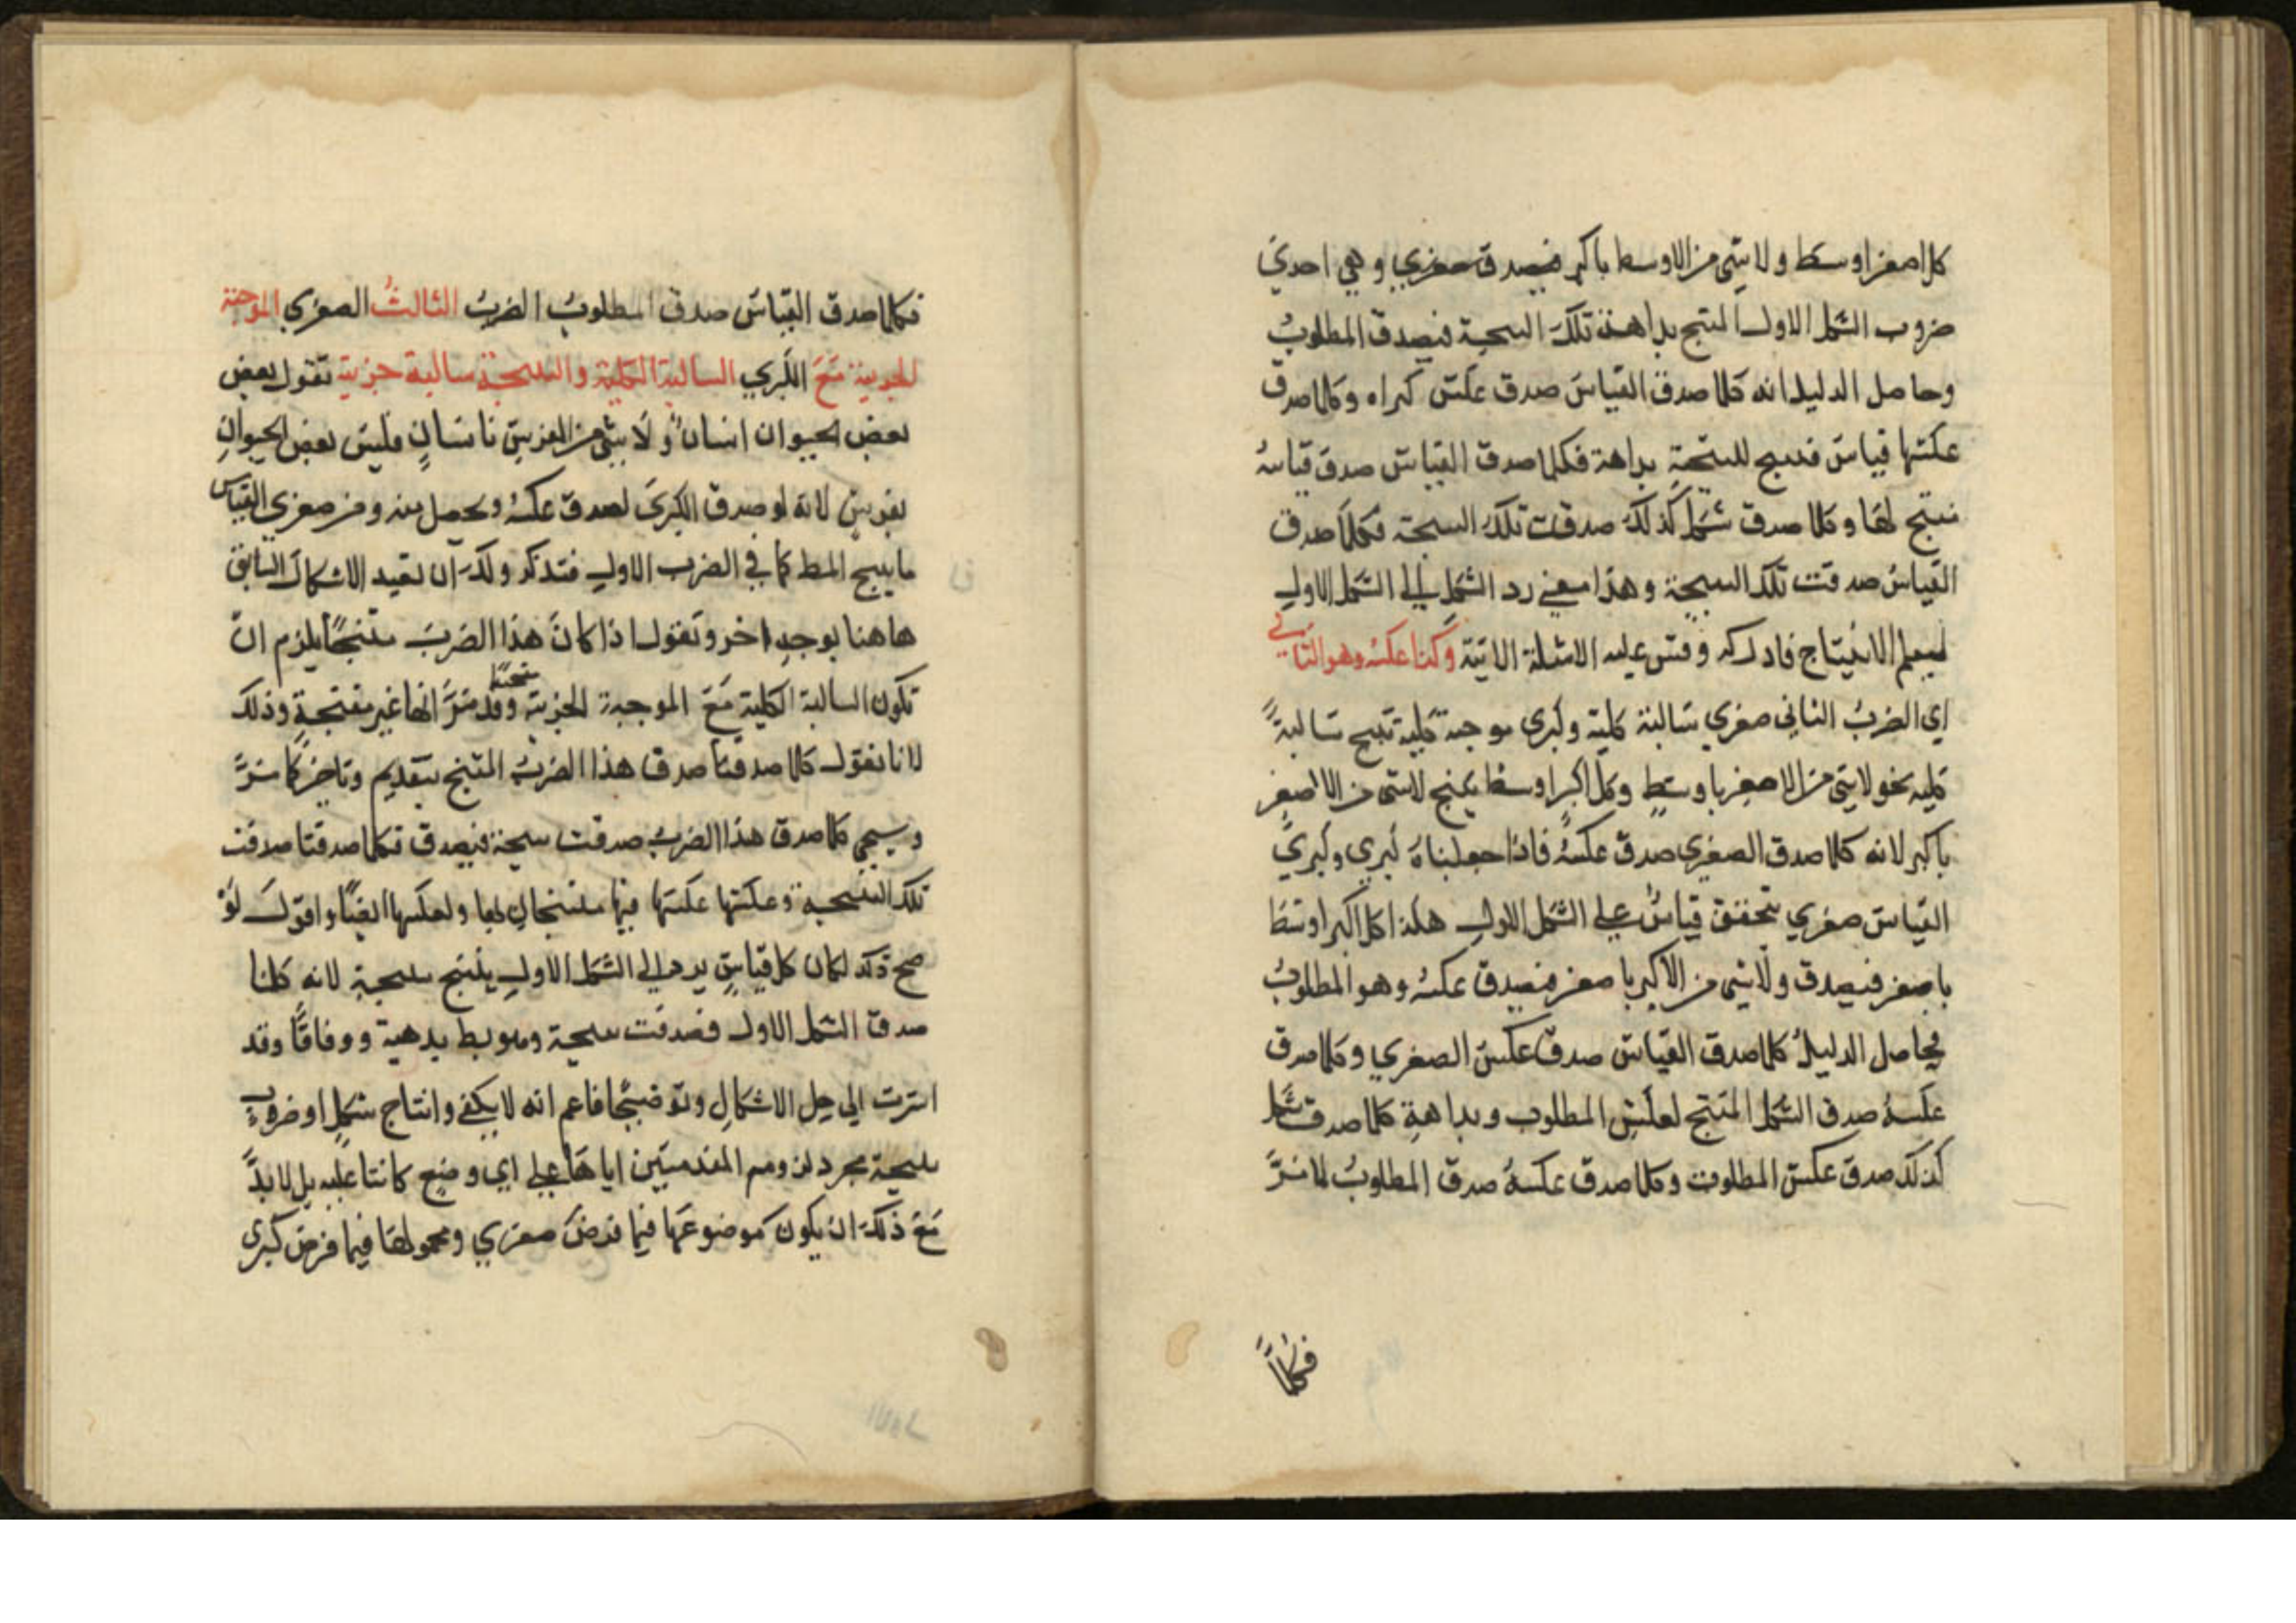 كل اصغر اوسط ولا شي من الاوسط باكبر فيصدق صغري وهي احدي
ضروب الشكل الاول المنتج بداهة تلك النتيجة فيصدق المطلوب
وحاصل الدليل انه كلما صدق القياس صدق عكس كبراه وكلما صدق
عكسها قياس فينتج للنتيجة بداهة فكلما صدق القياس صدق قياس
منتج لها وكلما صدق شكل كذلك صدقت تلك النتيجة فكلما صدق
القياس صدقت تلك النتيجة وهذا معني رد الشكل الي الشكل الاول
ليعلم الانتاج فادركه وقس عليه الامثلة الاتية وكذا عكسه وهو الثاني
اي الضرب الثاني صغري سالبة كلية وكبري موجبة كلية تنتج سالبة
كلية نحو لا شي من الاصغر باوسط وكل اكبر اوسط ينتج لا شي من الاصغر
باكبر لانه كلما صدق الصغري صدق عكسه فاذا جعلناه كبري وكبري
القياس صغري تحقق قياس علي الشكل الاول هكذا كل اكبر اوسط
باصغر فيصدق ولا شي من الاكبر باصغر فيصدق عكسه وهو المطلوب
فحاصل الدليل كلما صدق القياس صدق عكس الصغري وكلما صدق
عكسه صدق الشكل المنتج لعكس المطلوب وبداهة كلما صدق شكل
كذلك صدق عكس المطلوب وكلما صدق عكسه صدق المطلوب لما مر
فكلما
فكلما صدق القياس صدق المطلوب الضرب الثالث الصغري الموجبة
الجزيية مع الكبري السالبة الكلية والنتيجة سالبة جزية تقول بعض
بعض الحيوان انسان ولا شي من الفرس بانسان فليس بعض الحيوان
بفرس لانه لو صدق الكبري لصدق عكسه ويحصل منه ومن صغري القياس
ما ينتج المط كما في الضرب الاول فتذكر ولك ان تعيد الاشكال السابق
هاهنا بوجه اخر وتقول اذا كان هذا الضرب منتجا يلزم ان
تكون السالبة الكلية مع الموجبة الجزية منتجة وقد مر انها غير منتجة وذلك
لانا نقول كلما صدقتا صدق هذا الضرب المنتج بتقديم وتاخير كما مر
وسيجي كلما صدق هذا الضرب صدقت نتيجة فيصدق فكلما صدقتا صدقت
تلك النتيجة وعكسها عكسها فهما منتجان لها ولعكسها ايضا واقول لو
صح ذلك لكان كل قياس يرد الي الشكل الاول ينتج نتيجة لانه كلما
صدق الشكل الاول فصدقت نتيجة وهو بط بدهية ووفاقا وقد
اشرت الي حل الاشكال وتوضيحا فاعلم انه لا يكفي وانتاج شكل او ضرب
نتيجة مجرد لزوم المقدمتين اياها علي اي وضع كانتا عليه بل لا بد
مع ذلك ان يكون موضوعها فيما فرض صغري ومحمولها فيما فرض كبري